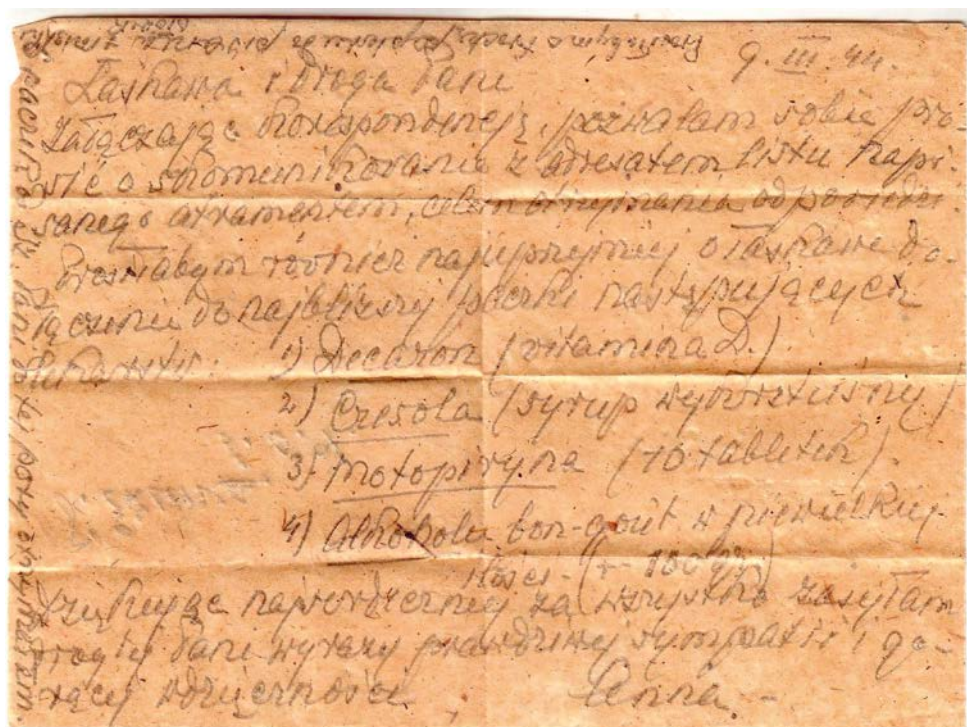 9. III. 44.
Łaskawa i Droga Pani
Załączając korespondencję, pozwalam sobie pro-
sić o skomunikowanie z adresatem listu napi-
sanego atramentem, celem otrzymania odpowiedzi
Prosiłabym również najuprzejmiej o łaskawe do-
łączenie do najbliższej paczki następujących
lekarstw:
1) Decaron (vitamina D.)
2) Cresola (syrup wykrztuśny)
3) Motopiryna (10 tabletek).
4) Alkoholu bon-goût w niewielkiej
ilości - (+- 100 gr)
Dziękując najserdeczniej za wszystko zasyłam
Drogiej Pani wyrazy prawdziwej sympatii i go-
rącej wdzięczności
Anna -
Prosiłabym o trochę
Pani do tej pory otrzymałam.